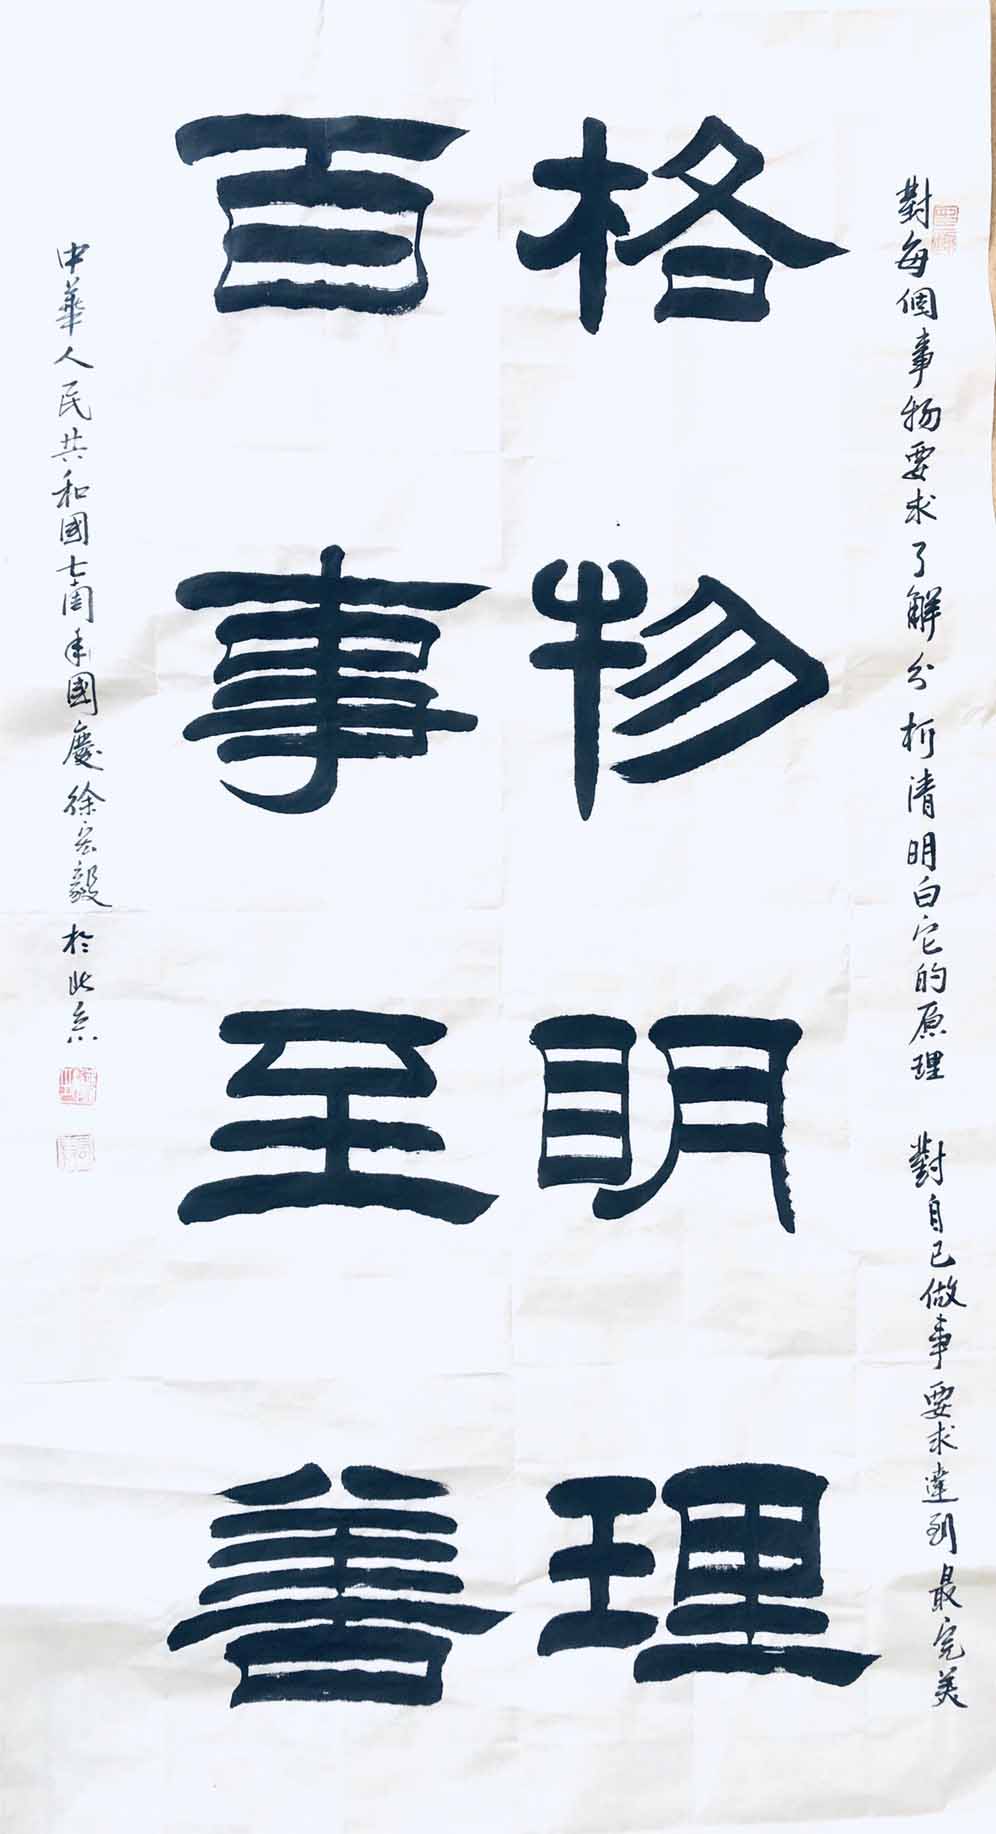 對每個事物要求了解分析清明白它的原理 對自己做事要求達到最完美
格物明理
百事至善
中華人民共和國七十周年國慶徐宏毅於北京